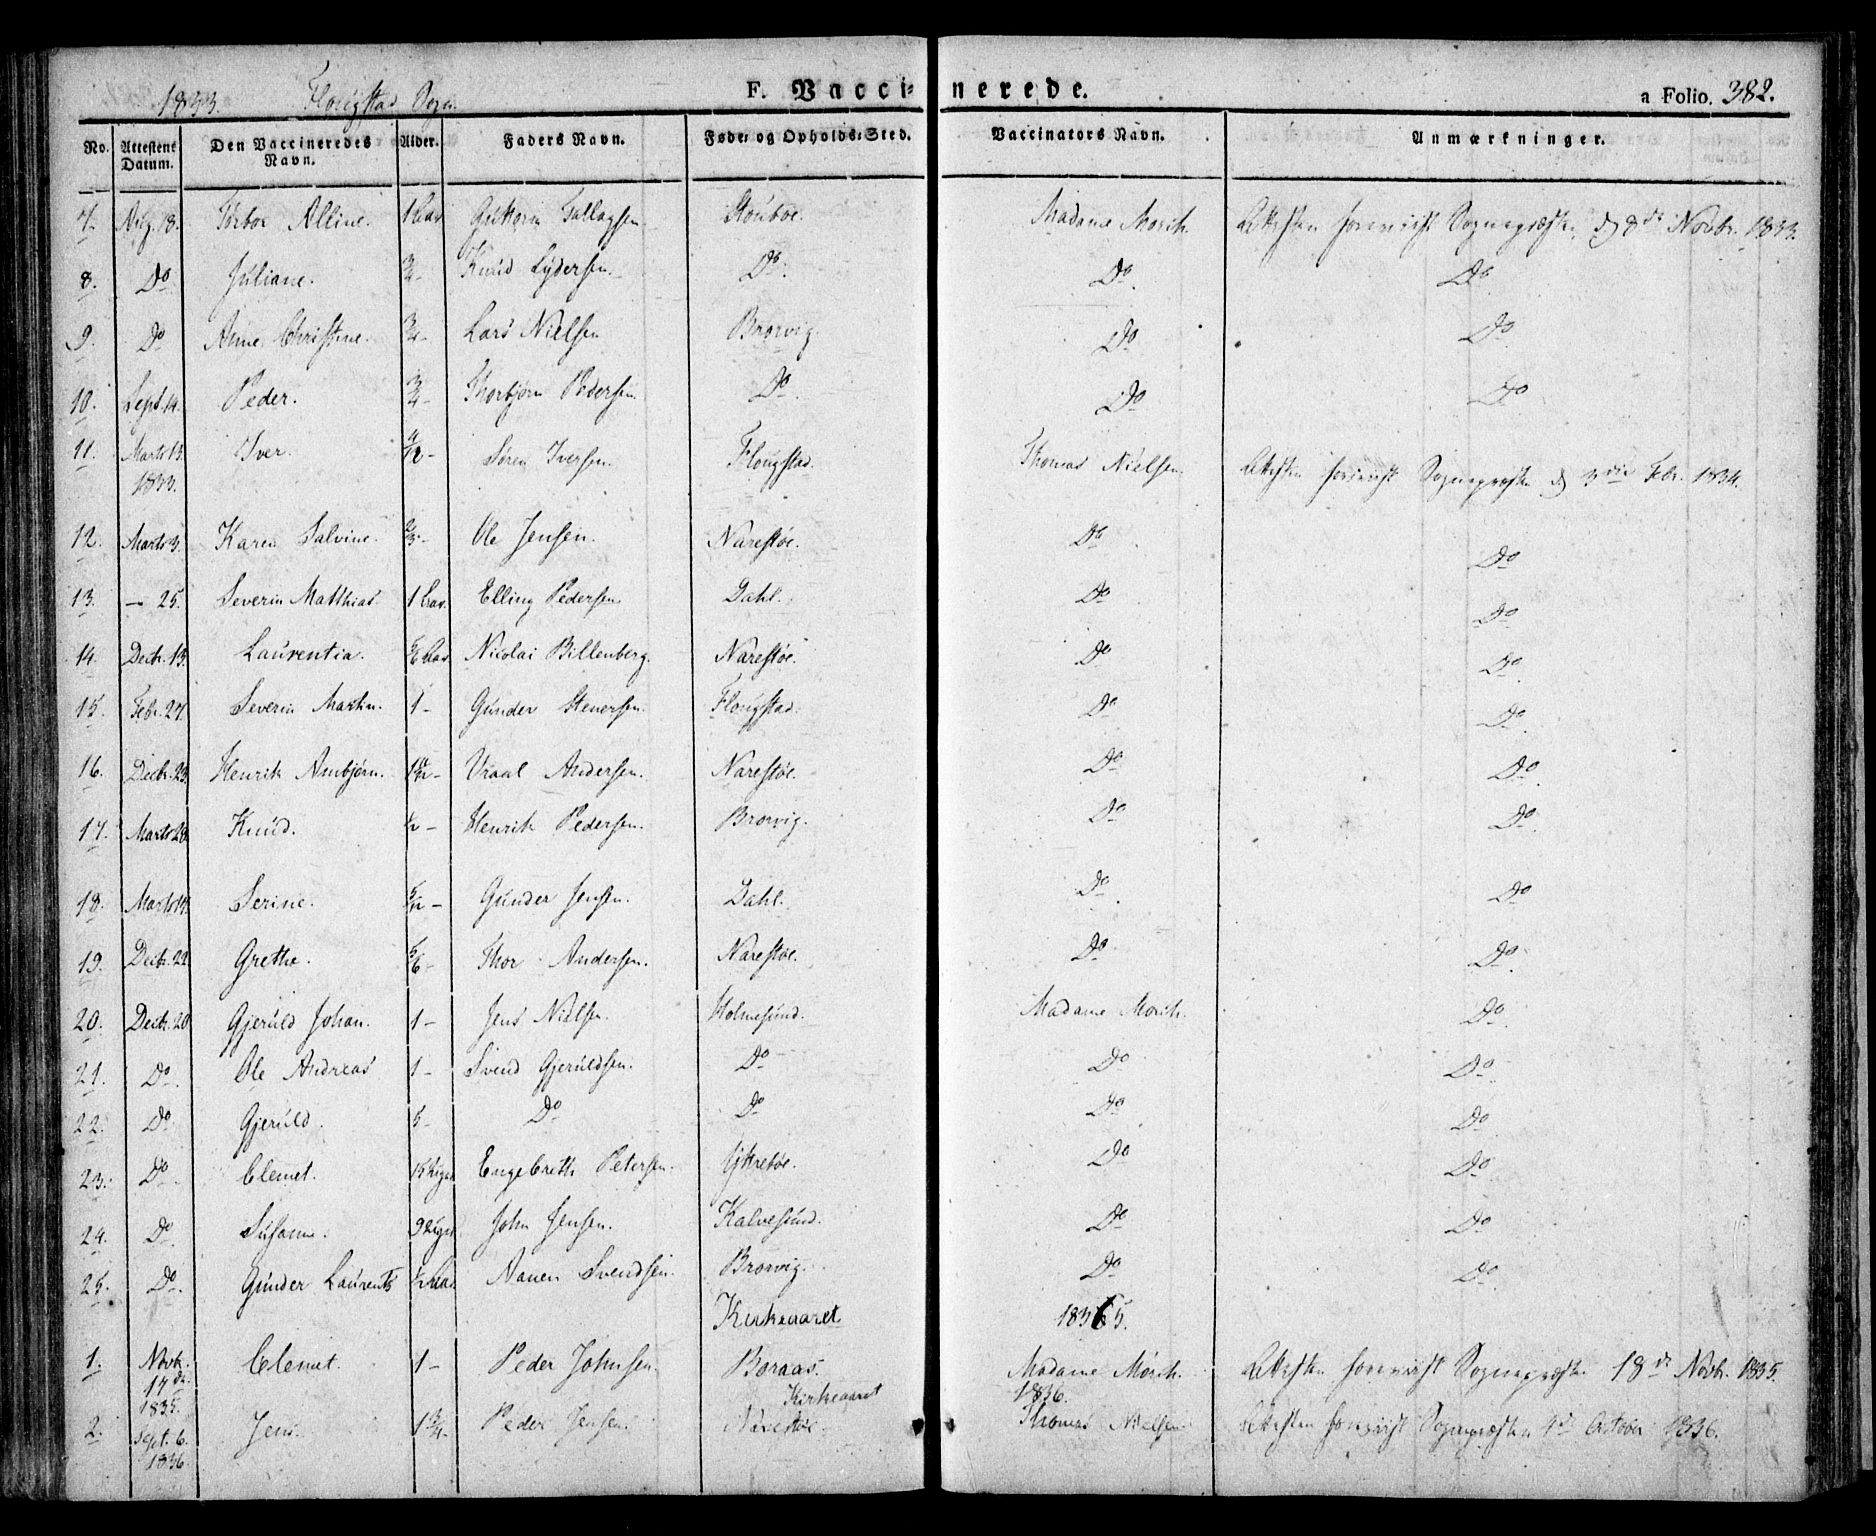 1833. Flougstad Sogn.
F. Vaccinerede. a Folio. 382.
No. Attestens Datum. Den Vaccineredes Navn. Alder. Faders Navn. Føde- og Opholds-Sted. Vaccinators Navn. Anmærkninger.
7. Aug. 18. Torbor Alline. 1 Aar Guttorm Tallagsen. Stouboe. Madame Morch. Attesten foreviist Sognepræsten d 8de Novbr. 1833.
8. Do Juliane. 3/4- Knud Lydersen. Do. Do. Do
9. Do Anne Christine. 3/4- Lars Nielsen Brorvig. Do Do
10. Sept. 14. Peder. 3/4- Thorbjørn Pedersen. Do Do Do
11. Marts 13. 1833. Iver. Søren Iversen. Flougstad. Thomas Nielsen Attesten foreviist Sognepræsten d 3die Febr. 1834.
12. Marts 3. Karen Salvine. 2/3- Ole Jensen. Narestøe. Do Do
13. - 25. Severin Matthias. 1 Aar. Elling Pedersen Dahl. Do Do
14. Decbr. 13. Laurentia. Aar Nicolai Billenberg. Narestøe. Do Do
15. Febr. 27. Severin Martin. 1- Gunder Stenersen. Flougstad. Do Do
16. Decbr. 23. Henrik Anbjørn. Vraal Andersen. Narestøe. Do Do.
17. Marts 28. Knud. 1/2- Henrik Pedersen. Brorvig. Do Do.
18. Marts 14. Serine. 5/12- Gunder Jensen. Dahl. Do Do
19. Decbr. 22. Grethe. 5/6- Thor Andersen. Narestøe. Do Do.
20. Decbr. 20 Gjeruld Johan. 1- Jens Nielsen. Holmesund. Madame Morch. Do
21. Do. Ole Andreas 1- Svend Gjeruldsen. Do Do Do
22. Do. Gjeruld. 5- Do Do Do Do
23. Do. Clemet. 15 Uger Engebreth Petersen. Do Do
24. Do. Susanne. 9 Uger John Jensen. Kalvesund. Do Do
25. Do. Gunder Laurents 1/2 Aar Aanen Svendsen. Brorvig. Do Do
Kirkeaaret 1835.
1. Novbr. 17de 1835. Clemet. 1- Peder Johnsen. Boraas. Madame Morch. Attesten foreviist Sognepræsten 18de Novbr. 1835.
Kirkeaaret 1836.
2. Sept. 6. 1836 Jens. 1 3/4- Peder Jensen. Narestøe. Thomas Nielsen Attesten foreviist Sognepræsten 4de October 1836.